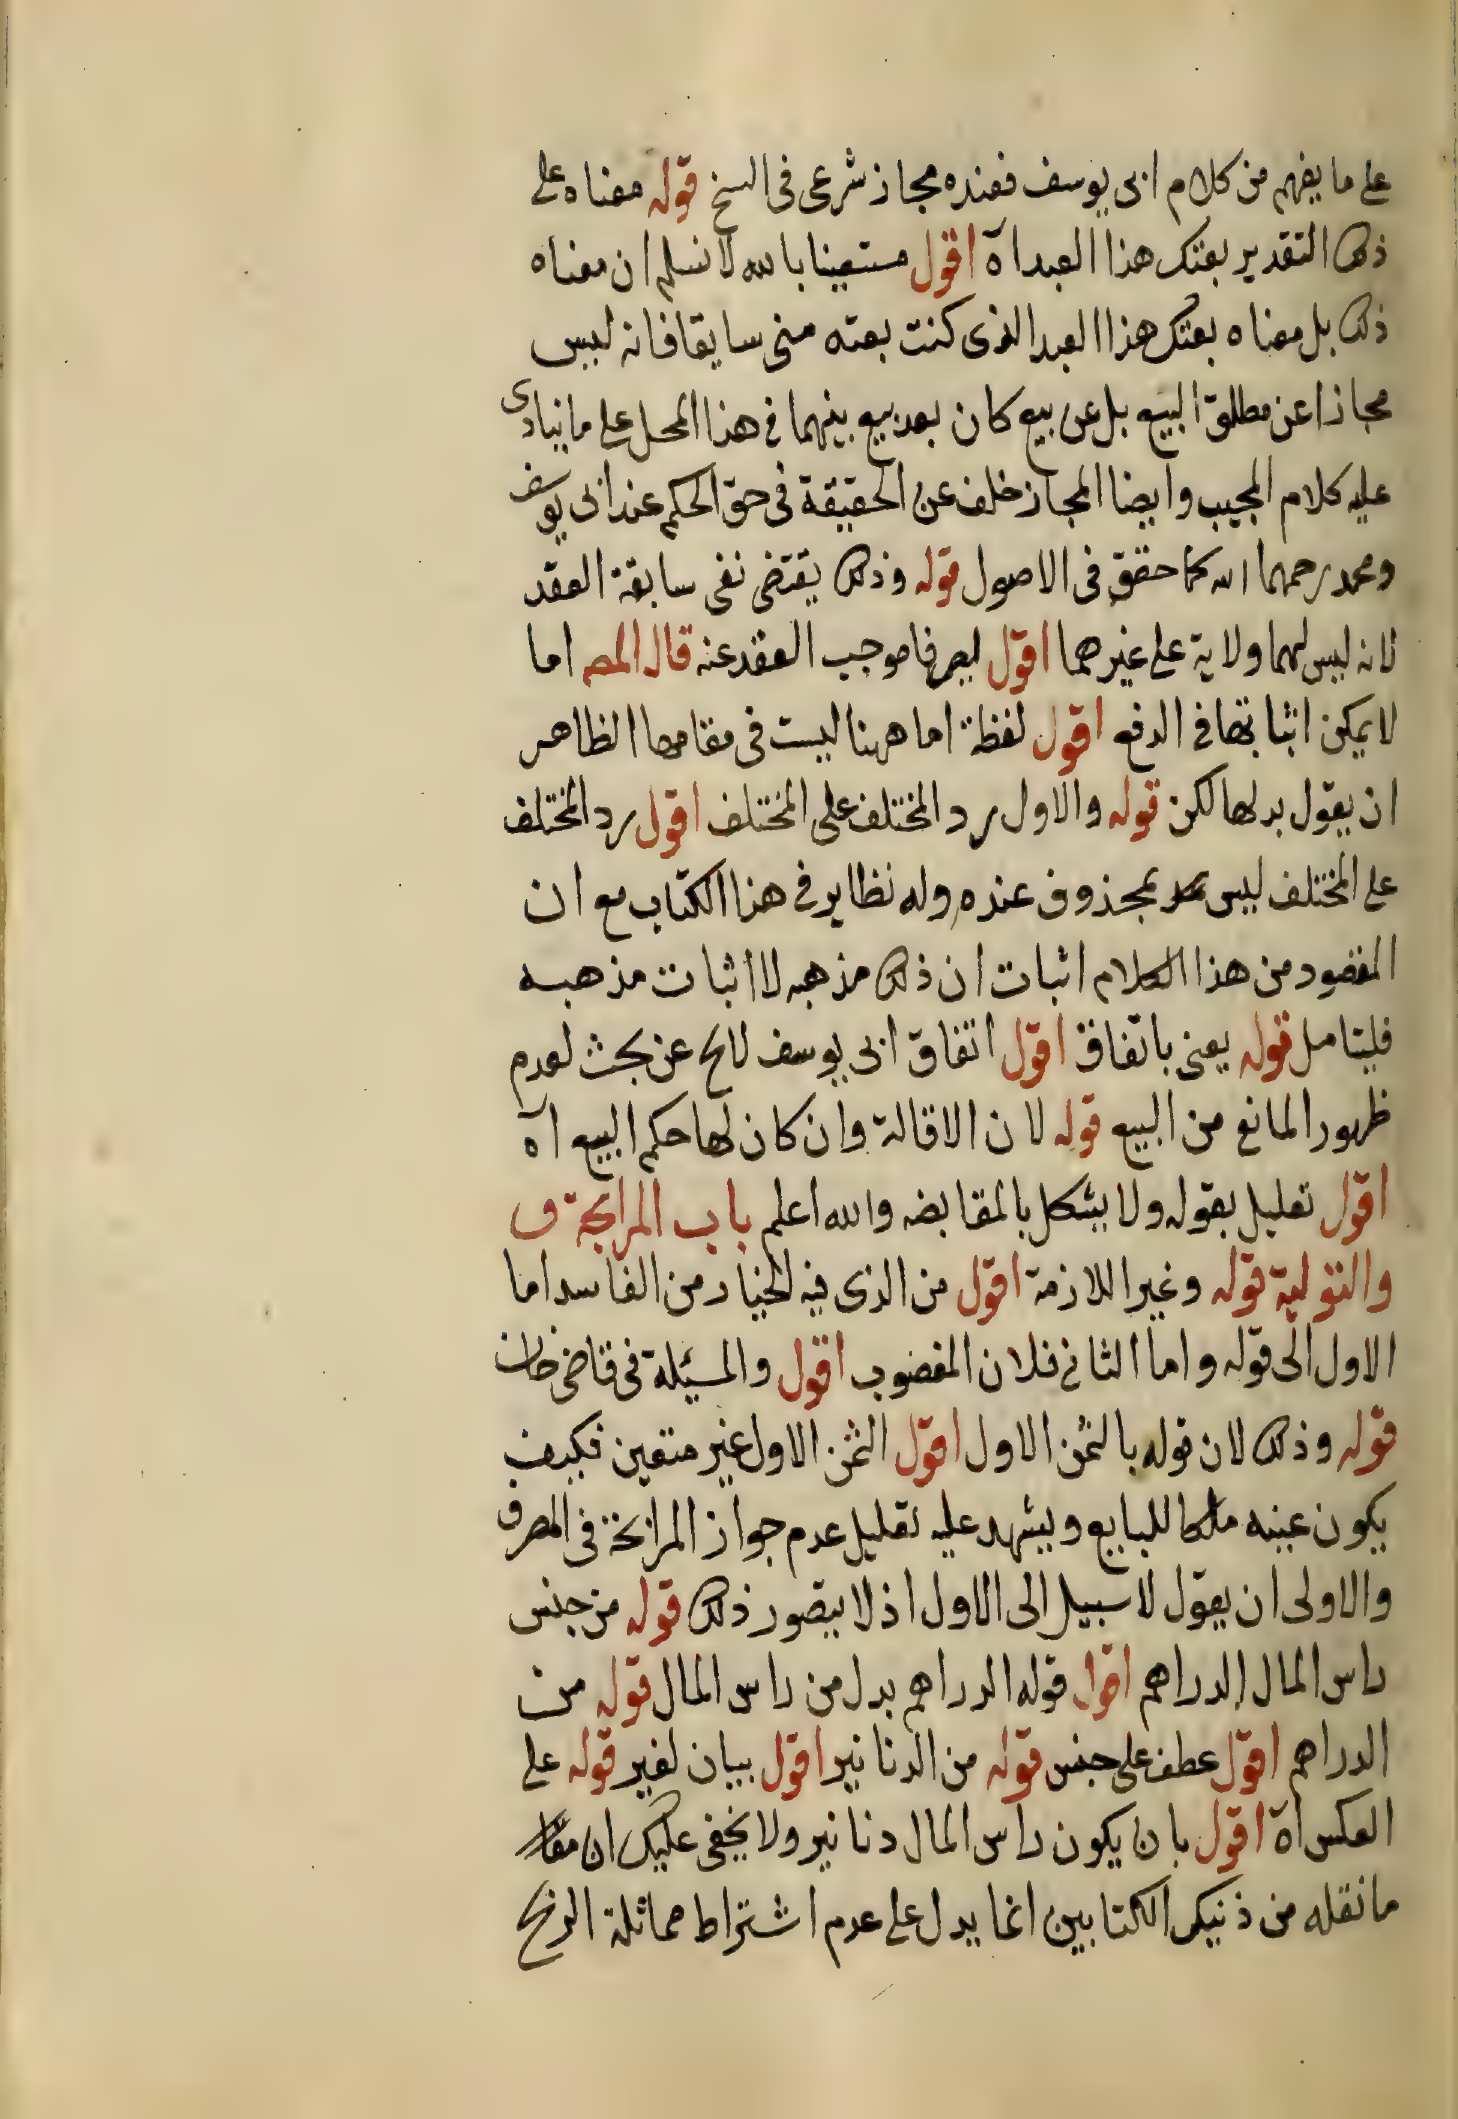 على ما يفهم من كلام ابى يوسف فعنده مجاز شرعى فى الفسخ قوله معناه على
ذلك التقدير بعتك هذا العبد اآه اقول مستعينا بالله لا نسلم ان معناه
ذلك بل معناه بعتك هذا العبد الذى كنت بعته منى سابقا فانه ليس
مجازا عن مطلق البيع بل عن بيع كان بعد بيع بينهما فى هذا المحل على ما ينادى
عليه كلام المجيب وايضا المجاز خلف عن الحقيقة فى حق الحكم عند ابى يوسف
ومحمد رحمهما الله كما حقق فى الاصول قوله وذلك يقتضى نفى سابقة العقد
لانه ليس لهما ولاية على غيرهما اقول ليصرفا موجب العقد عنه قال المص اما
لا يمكن اثباتها فى الدفع اقول لفظة اما ههنا ليست فى مقامها الظاهر
ان يقول بدلها لكن قوله والاول رد المختلف على المختلف اقول رد المختلف
على المختلف ليس بمحذوف عنده وله نظاير فى هذا الكتاب مع ان
المقصود من هذا الكلام اثبات ان ذلك مذهبه لا اثبات مذهبه
فليتامل قوله يعنى باتفاق اقول اتفاق ابى يوسف لاح عن بحث لعدم
ظهور المانع من البيع قوله لان الاقالة وان كان لها حكم البيع اآه
اقول تعليل بقوله ولا يشكل بالمقابضه والله اعلم باب المرابحة و
والتولية قوله وغير اللازمة اقول من الذى فيه الخيار من الفاسد اما
الاول الى قوله واما الثانى فلان المغصوب اقول والمسئلة فى قاضى خان
قوله وذلك لان قوله بالثمن الاول اقول الثمن الاول غير متعين فكيف
يكون عينه ملكا للبايع ويشهد عليه تعليل عدم جواز المرابحة فى الصرف
والاولى ان يقول لا سبيل الى الاول اذ لا يتصور ذلك قوله من جنس
راس المال الدراهم اقول قوله الدراهم بدل من راس المال قوله من
الدراهم اقول عطف على جنس قوله من الدنانير اقول بيان لغير قوله على
العكس اآه اقول بان يكون راس المال دنانير ولا يخفى عليك ان
ما نقله من ذنيك الكتابين انما يدل على عدم اشتراط مماثلة الربح